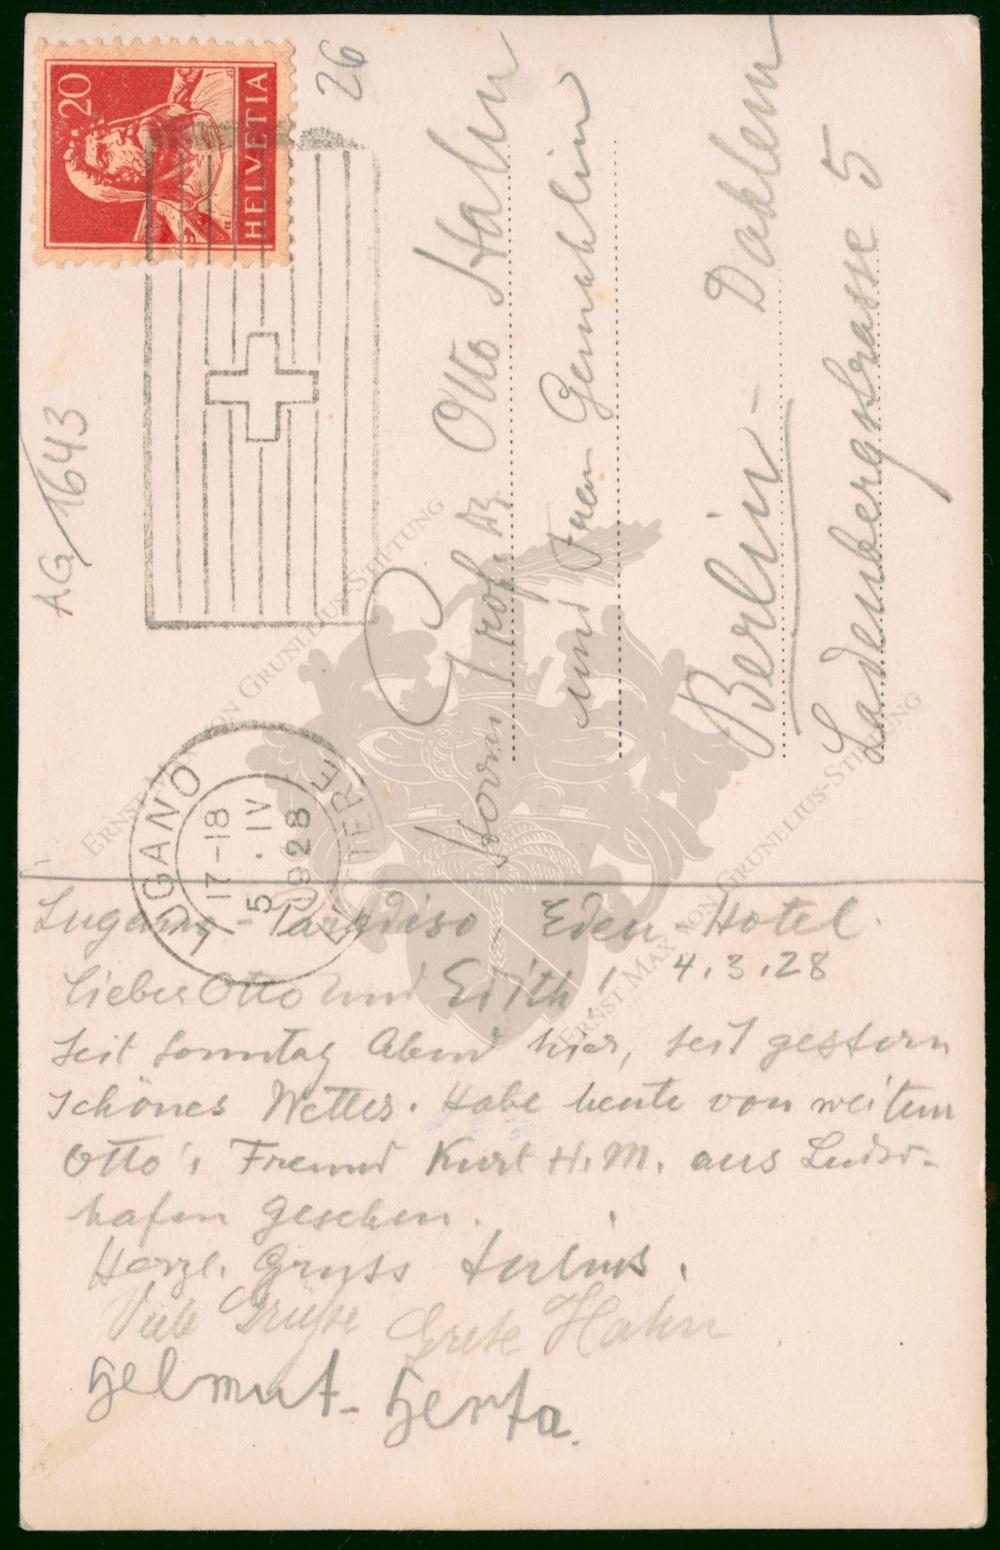 20
HELVETIA
26
AG/1643
LUGANO
17-18
5.IV
1928
LETTERE
Herrn Prof. Dr. Otto Hahn
und Frau Gemahlin
Berlin - Dahlem
Ladenbergstrasse 5
Lugano - Paradiso Eden Hotel.
4.3.28
Lieber Otto und Edith!
Seit Sonntag Abend hier, seit gestern
schönes Wetter. Habe heute von weitem
Otto's Freund Kurt H.M. aus Ludw-
hafen gesehen.
Herzl. Gruss Julius.
Viele Grüße Grete Hahn
Helmut - Herta.
ERNST MAX VON GRUNELIUS-STIFTUNG
ERNST MAX VON GRUNELIUS-STIFTUNG